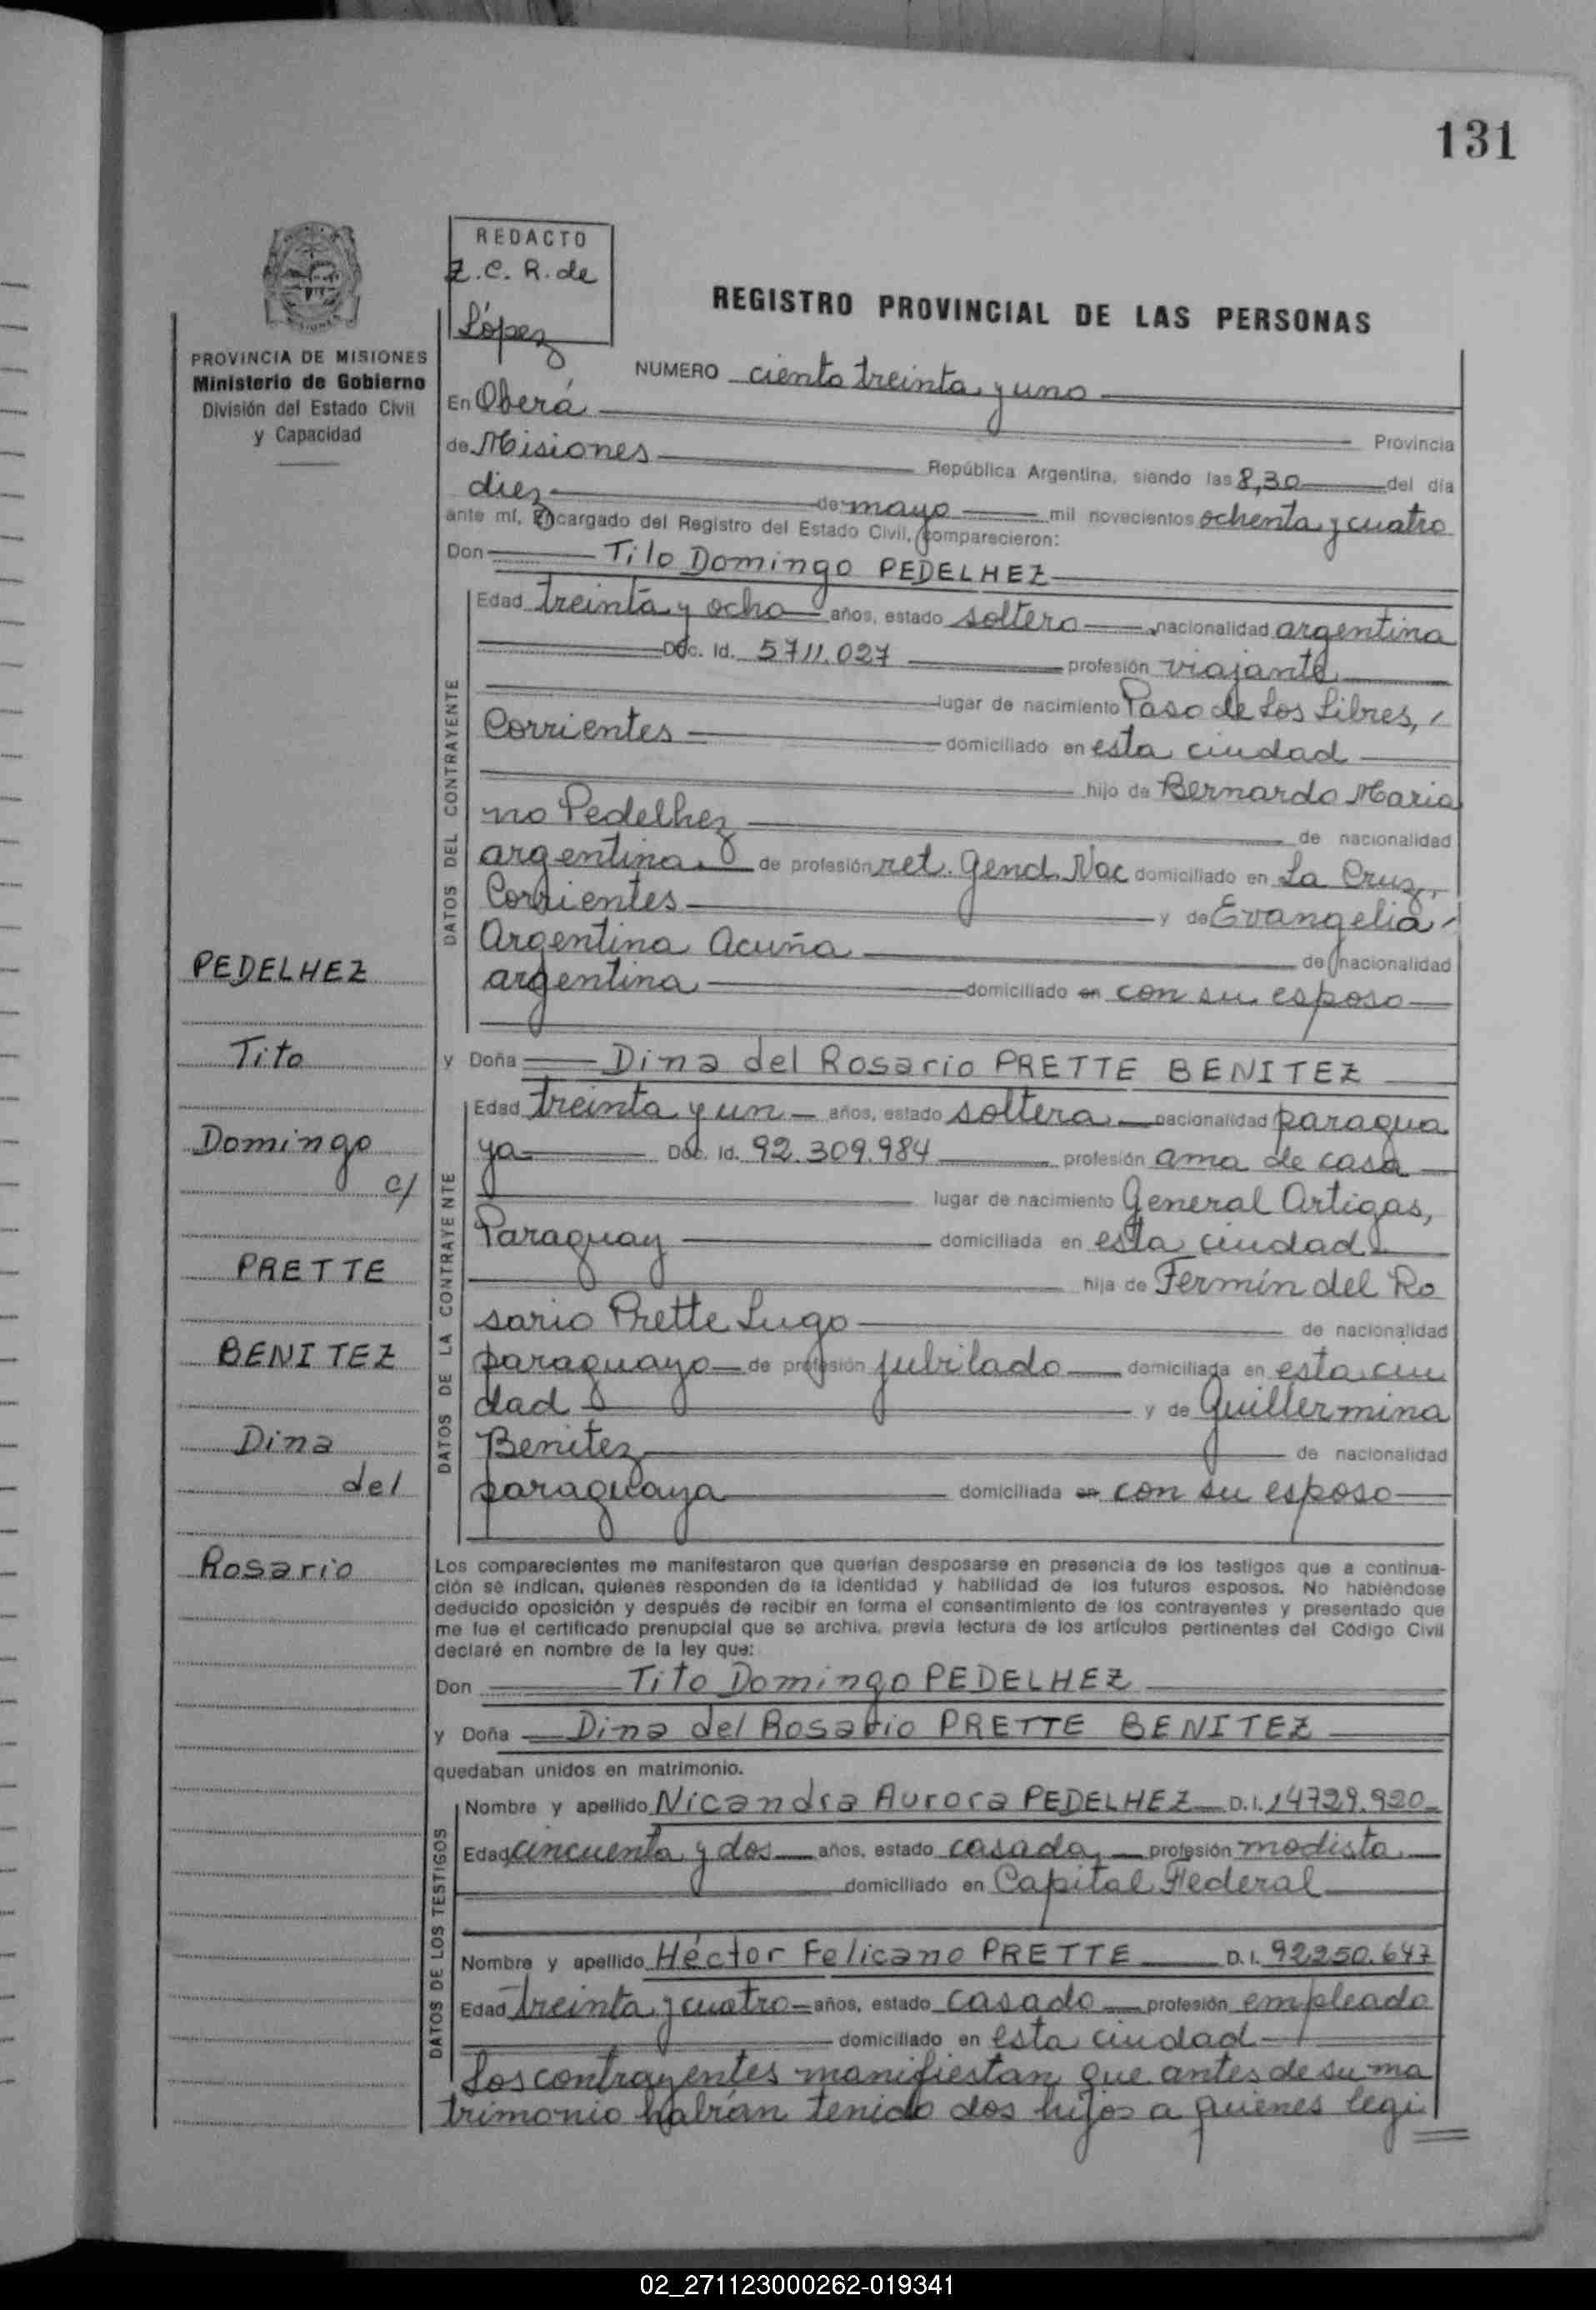 131
REDACTO
Z. C. R. de
López
REGISTRO PROVINCIAL DE LAS PERSONAS
PROVINCIA DE MISIONES
Ministerio de Gobierno
División del Estado Civil
y Capacidad
NUMERO ciento treinta y uno
En Oberá Provincia
de Misiones República Argentina, siendo las 8,30 del día
diez de mayo mil novecientos ochenta y cuatro
ante mí, Encargado del Registro del Estado Civil, comparecieron:
Don Tilo Domingo PEDELHEZ
DATOS DEL CONTRAYENTE
Edad treinta y ocho años, estado soltero nacionalidad argentina
Doc. Id. 5711.027 profesión viajante
lugar de nacimiento Paso de Los Libres,
Corrientes domiciliado en esta ciudad
hijo de Bernardo Maria
no Pedelhez de nacionalidad
argentina de profesión ret. Gend. Nac domiciliado en La Cruz,
Corrientes y de Evangelia
Argentina Acuña de nacionalidad
argentina domiciliado en con su esposo
PEDELHEZ
Tito
Domingo
c/
PRETTE
BENITEZ
Dina
del
Rosario
y Doña Dina del Rosario PRETTE BENITEZ
DATOS DE LA CONTRAYENTE
Edad treinta y un años, estado soltera nacionalidad paragua
ya Doc. Id. 92.309.984 profesión ama de casa
lugar de nacimiento General Artigas,
Paraguay domiciliada en esta ciudad
hija de Fermín del Ro
sario Prette Lugo de nacionalidad
paraguayo de profesión jubilado domiciliada en esta ciu
dad y de Guillermina
Benitez de nacionalidad
paraguaya domiciliada en con su esposo
Los comparecientes me manifestaron que querían desposarse en presencia de los testigos que a continua-
ción se indican, quienes responden de la identidad y habilidad de los futuros esposos. No habiéndose
deducido oposición y después de recibir en forma el consentimiento de los contrayentes y presentado que
me fue el certificado prenupcial que se archiva, previa lectura de los artículos pertinentes del Código Civil
declaré en nombre de la ley que:
Don Tito Domingo PEDELHEZ
y Doña Dina del Rosario PRETTE BENITEZ
quedaban unidos en matrimonio.
DATOS DE LOS TESTIGOS
Nombre y apellido Nicandra Aurora PEDELHEZ D.I. 14729.920
Edad cincuenta y dos años, estado casada profesión modista
domiciliado en Capital Federal
Nombre y apellido Héctor Felicano PRETTE D.I. 92250.647
Edad treinta y cuatro años, estado casado profesión empleado
domiciliado en esta ciudad
Los contrayentes manifiestan que antes de su ma
trimonio habían tenido dos hijos a quienes legi
02_271123000262-019341